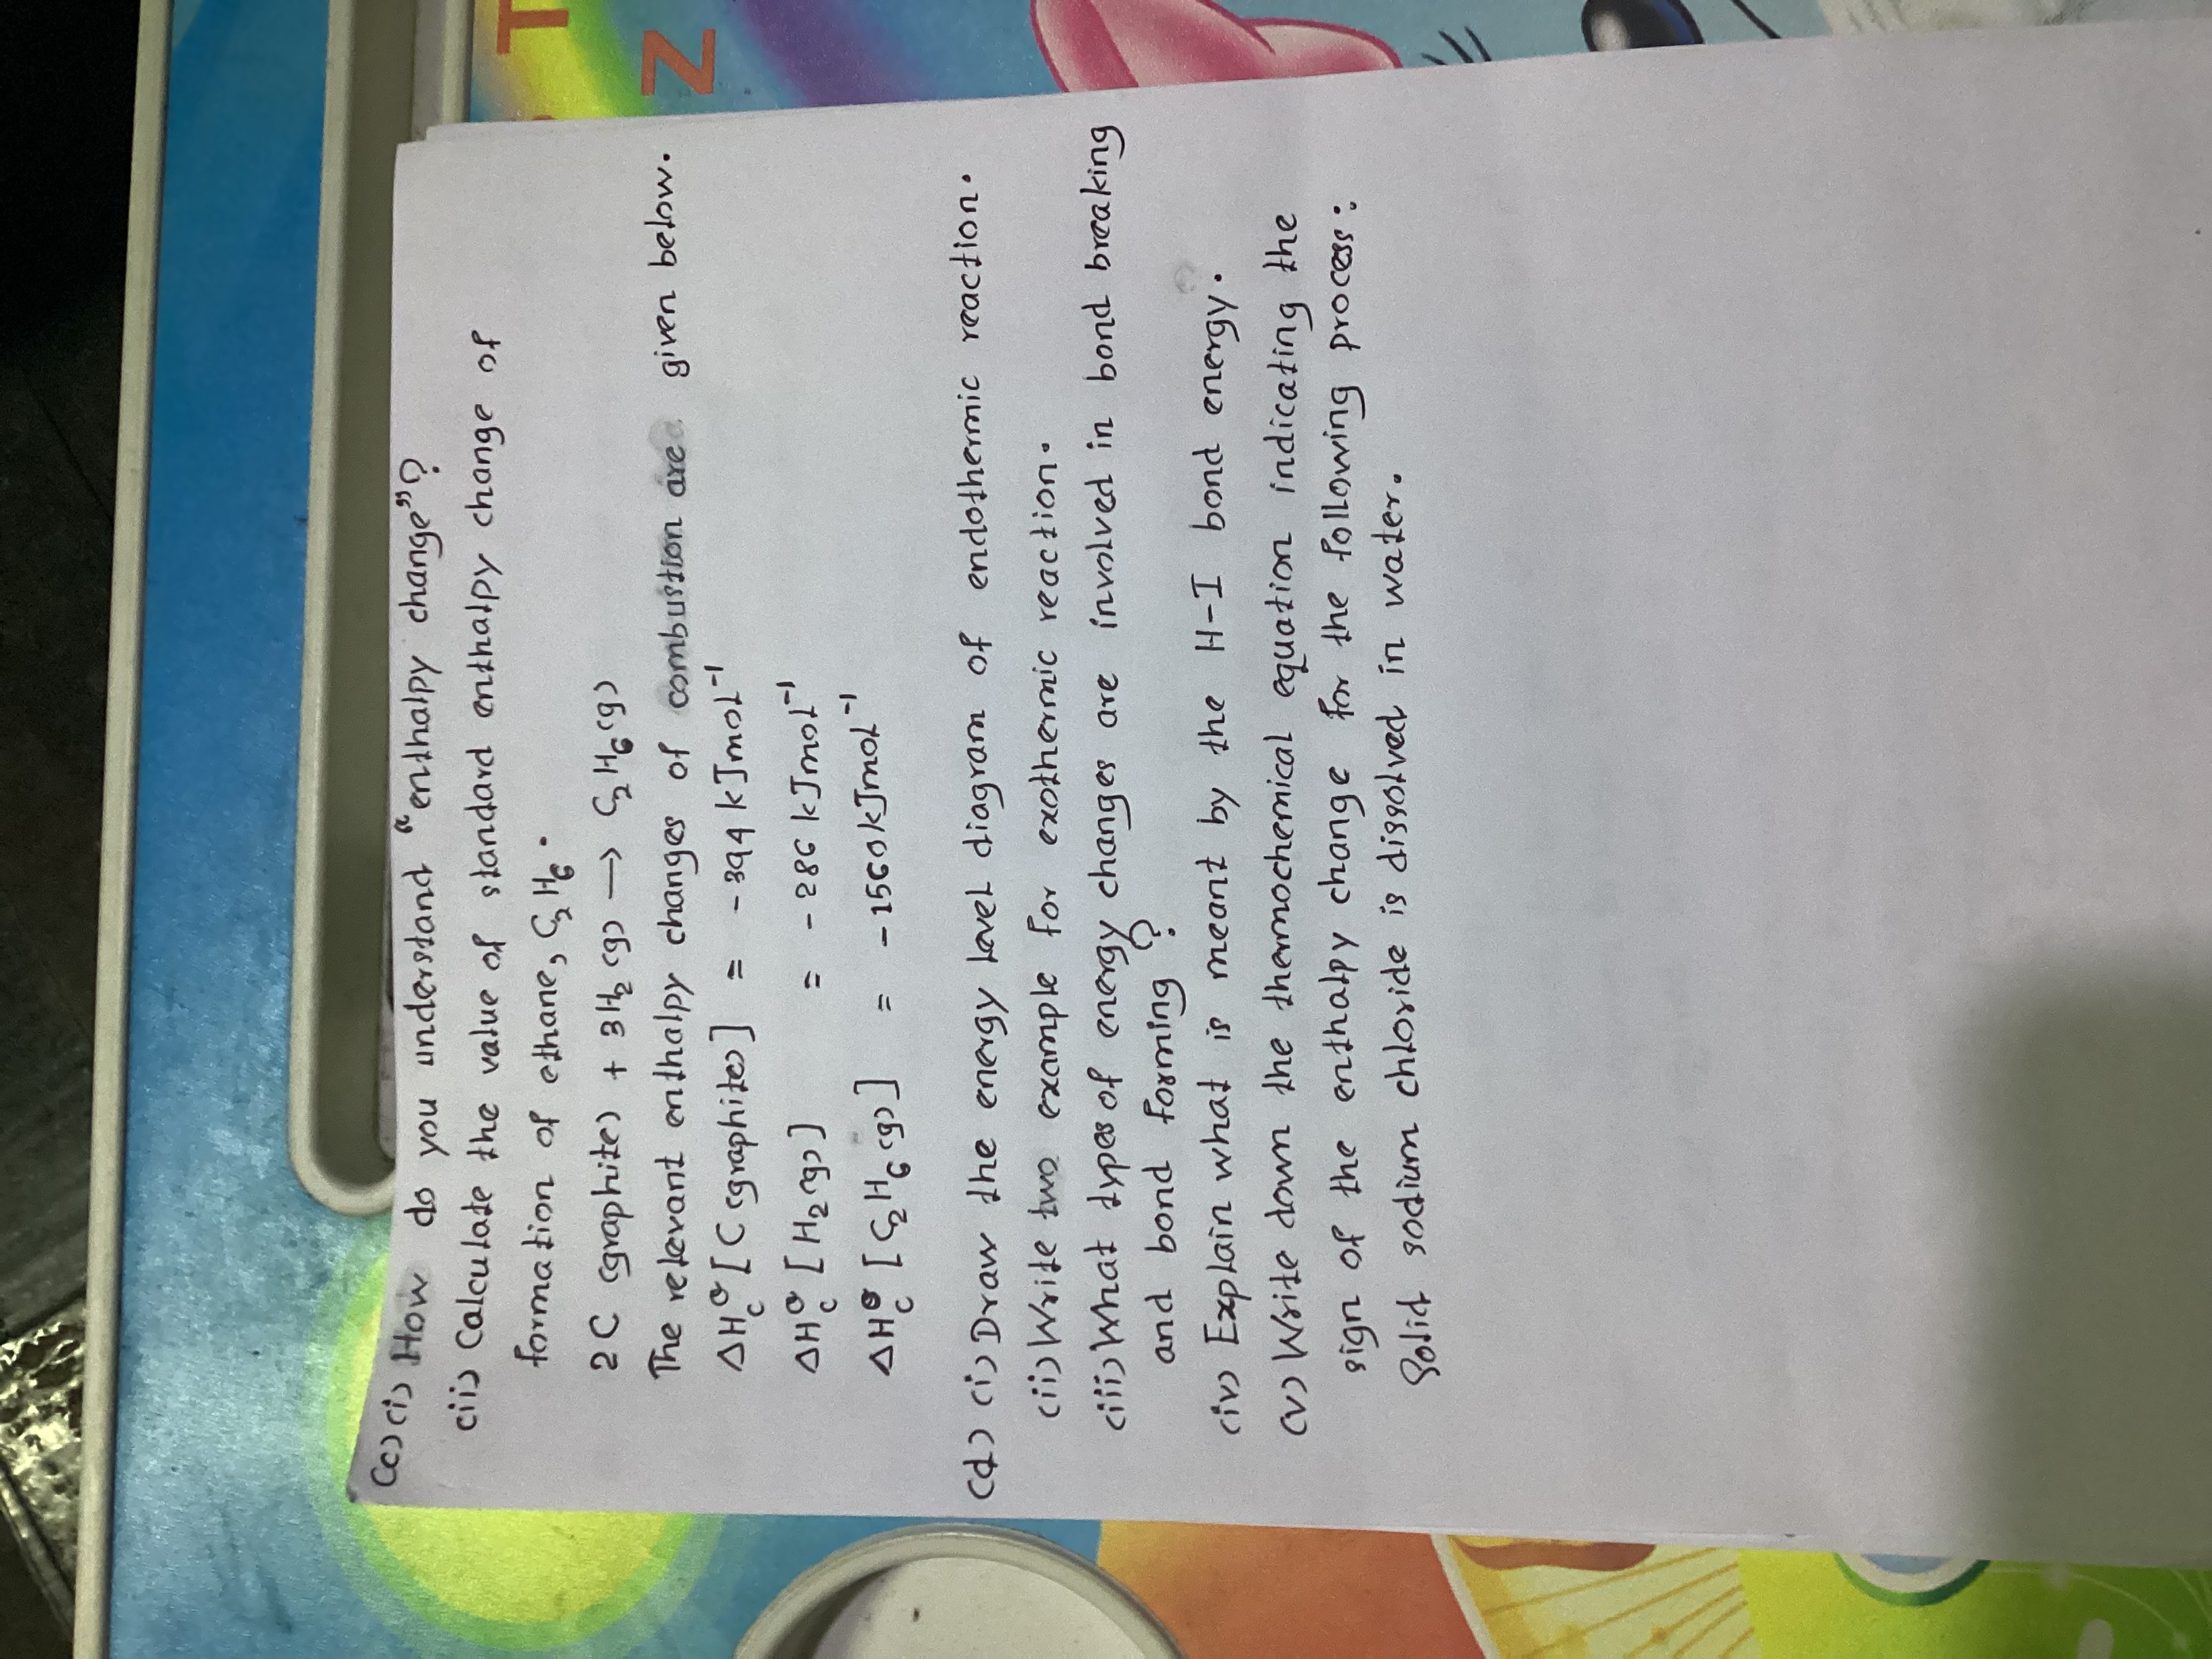 (c) (i) How do you understand "enthalpy change"?
(ii) Calculate the value of standard enthalpy change of
formation of ethane, C₂H₆.
2C (graphite) + 3H₂(g) → C₂H₆(g)
The relevant enthalpy changes of combustion are given below.
ΔH_c^θ [C(graphite)] = -394 kJmol⁻¹
ΔH_c^θ [H₂(g)] = -286 kJmol⁻¹
ΔH_c^θ [C₂H₆(g)] = -1560kJmol⁻¹
(d) (i) Draw the energy level diagram of endothermic reaction.
(ii) Write two example for exothermic reaction.
(iii) What types of energy changes are involved in bond breaking
and bond forming?
(iv) Explain what is meant by the H-I bond energy.
(v) Write down the thermochemical equation indicating the
sign of the enthalpy change for the following process:
Solid sodium chloride is dissolved in water.
T
Z